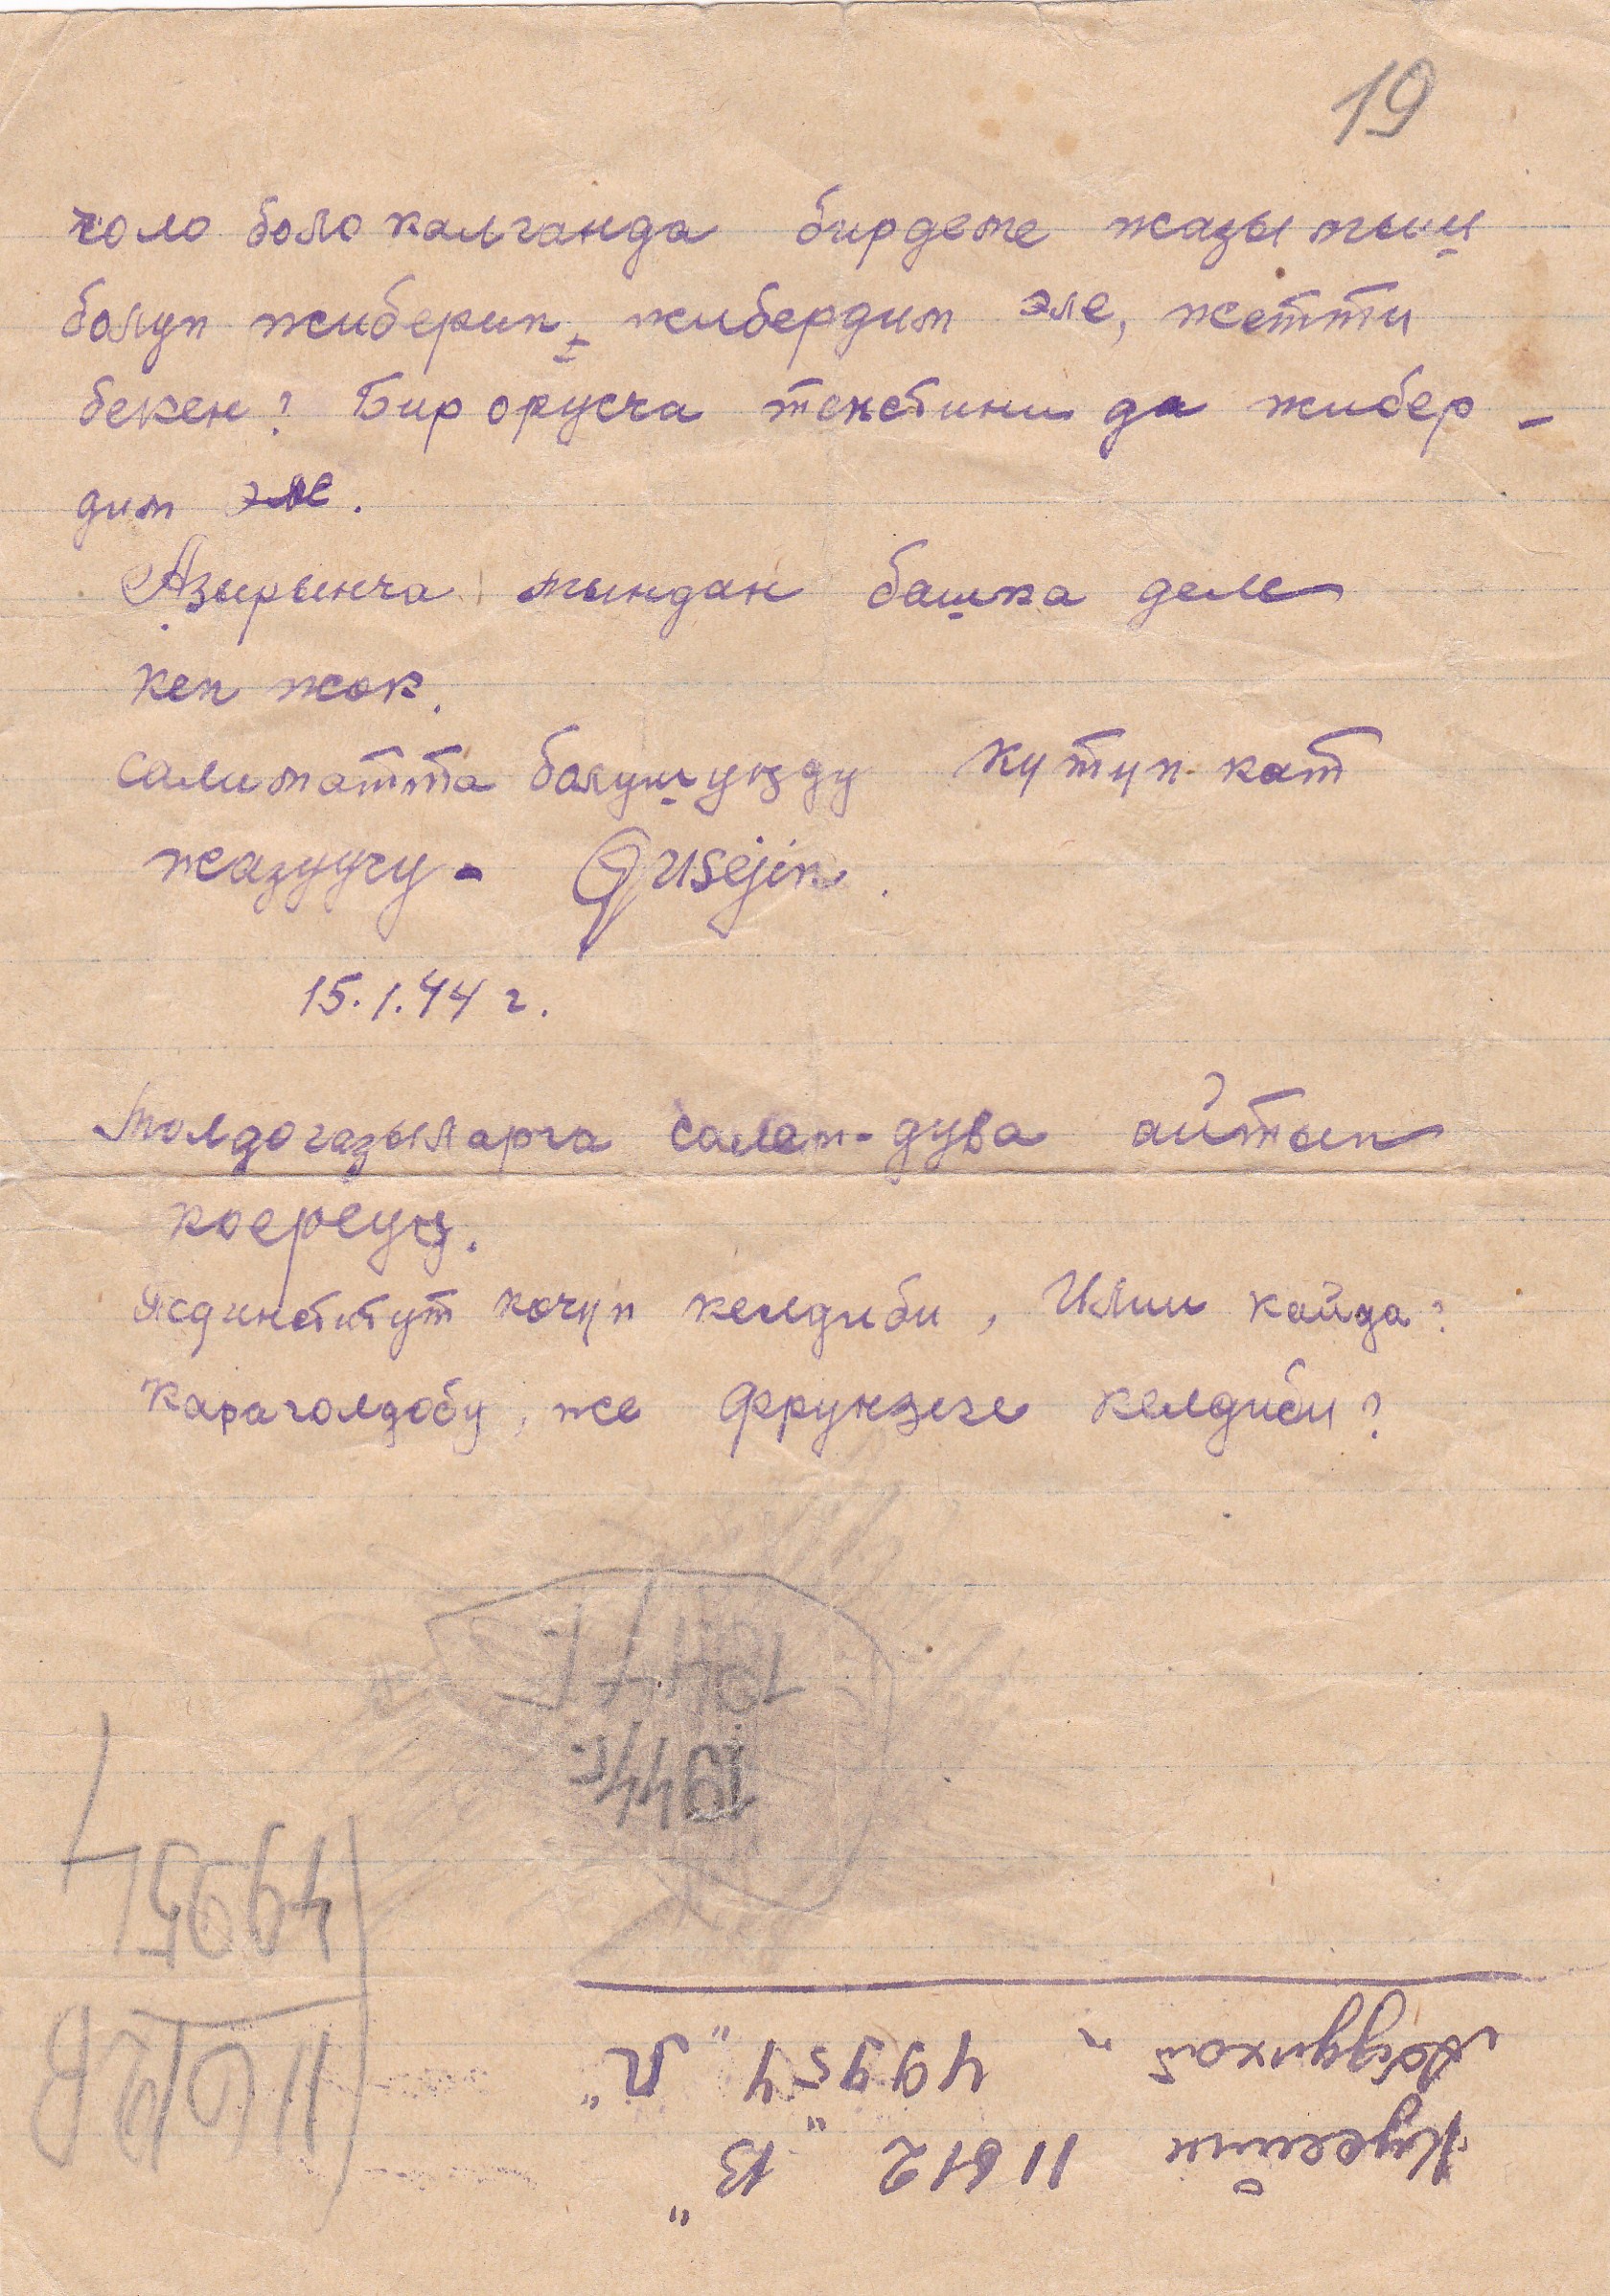 19
чоло боло калганда бирдеме жазымыш
болуп жиберип, жибердим эле, жетти
бекен? Бир орусча текстини да жибер-
дим эле.
Азырынча мындан башка деле
кеп жок.
Салиматта болушуңзду күтүп кат
жазуучу - Qusejin.
15.1.44 г.
Молдогазыларга салам-дува айтып
коерсуң.
Яединститут көчүп келдиби, Илии кайда?
Караголдобу, же Фрунзеге келдиби?
1947 г.
1944 г.
49954
11612 В
Абдукой " 49954 "Л"
Кусейин 11612 "В"